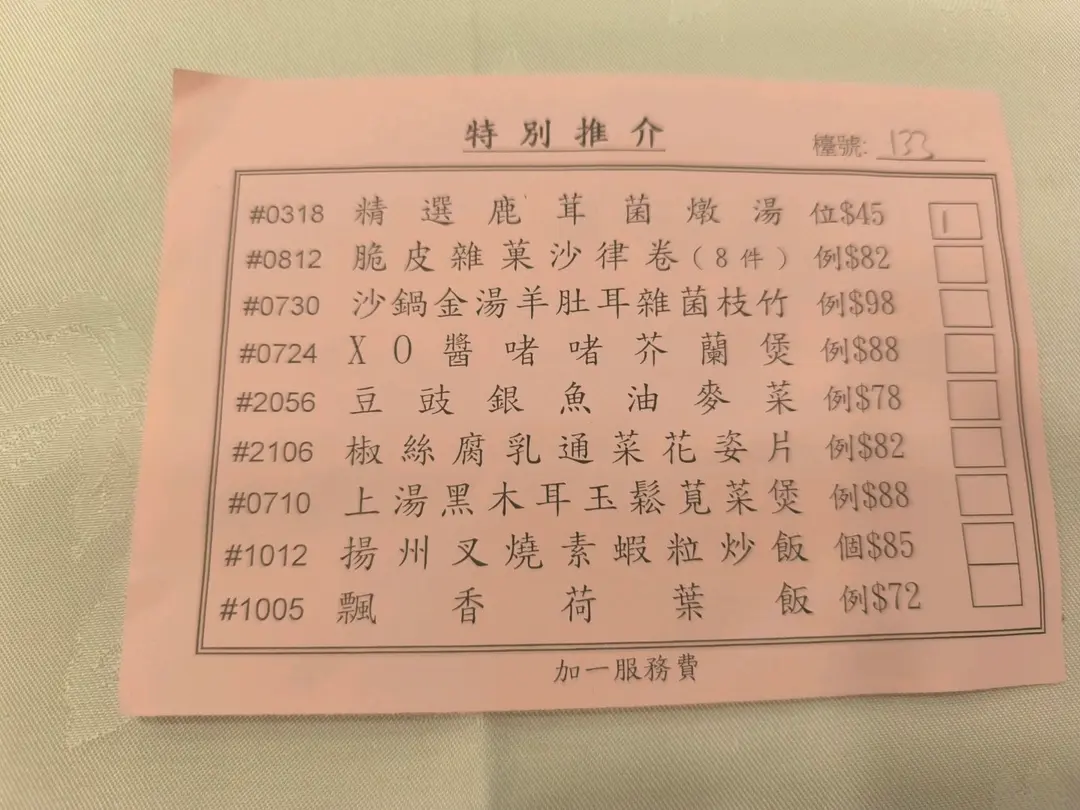 特別推介
檯號: 133
#0318 精選鹿茸菌燉湯 位$45 1
#0812 脆皮雜菓沙律卷(8件) 例$82
#0730 沙鍋金湯羊肚耳雜菌枝竹 例$98
#0724 XO醬啫啫芥蘭煲 例$88
#2056 豆豉銀魚油麥菜 例$78
#2106 椒絲腐乳通菜花姿片 例$82
#0710 上湯黑木耳玉鬆莧菜煲 例$88
#1012 揚州叉燒素蝦粒炒飯 個$85
#1005 飄香荷葉飯 例$72
加一服務費